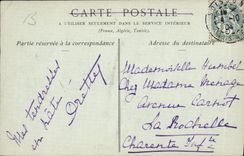 CARTE POSTALE
A UTILISER SEULEMENT DANS LE SERVICE INTÉRIEUR
(France, Algérie, Tunisie).
Partie réservée à la correspondance
Adresse du destinataire
Mes tendresses
en hâte
Mademoiselle Humbel
Chez Madame Menage
Avenue Carnot
La Rochelle
Charente Infre